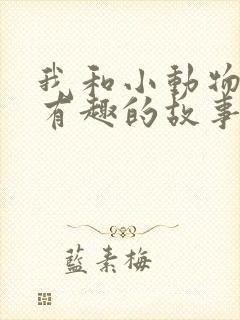 我和小動物
有趣的故事
藍素梅